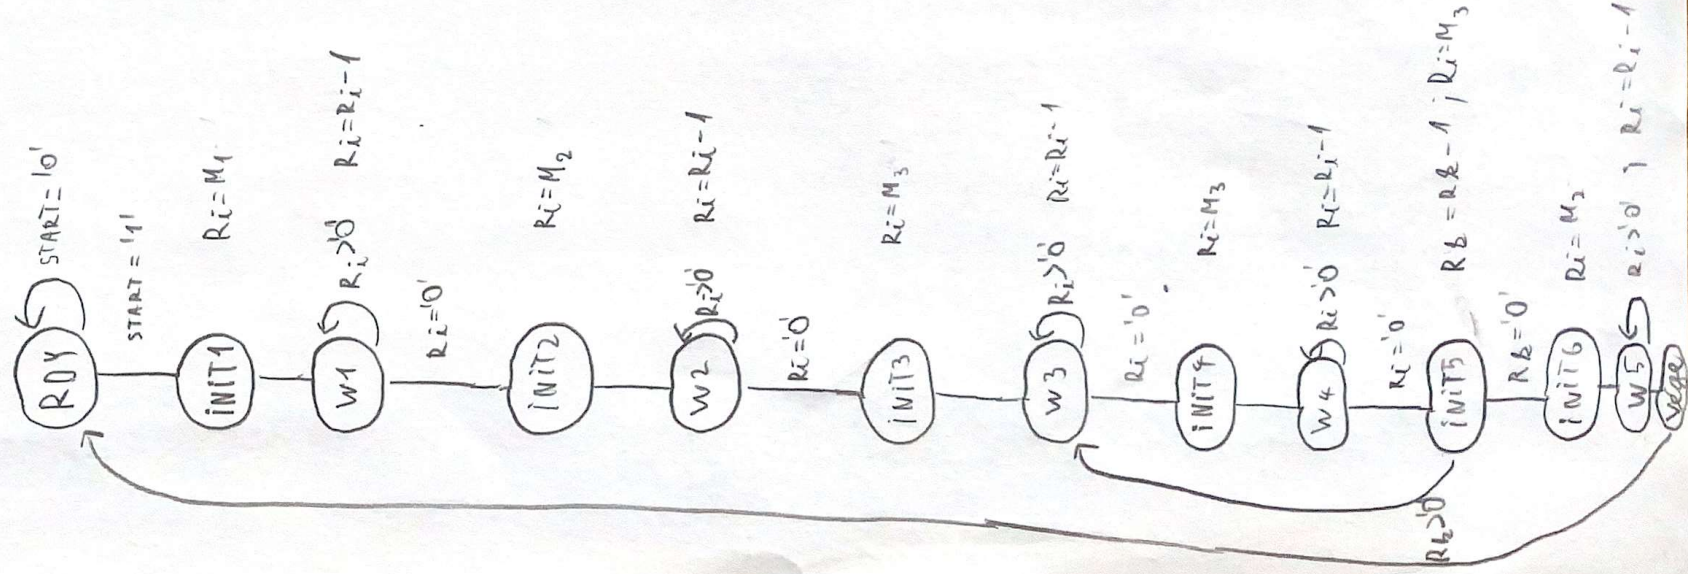 RDY
START='0'
START='1'
INIT1
Ri=M1
W1
Ri>'0'
Ri=Ri-1
Ri='0'
INIT2
Ri=M2
W2
Ri>'0'
Ri=Ri-1
Ri='0'
INIT3
Ri=M3
W3
Ri>'0'
Ri=Ri-1
Ri='0'
INIT4
Ri=M3
W4
Ri>'0'
Ri=Ri-1
Ri='0'
INIT5
Rb=Rb-1; Ri=M3
Rb>'0'
Rb='0'
INIT6
W5
Ri>'0'; Ri=Ri-1
vege